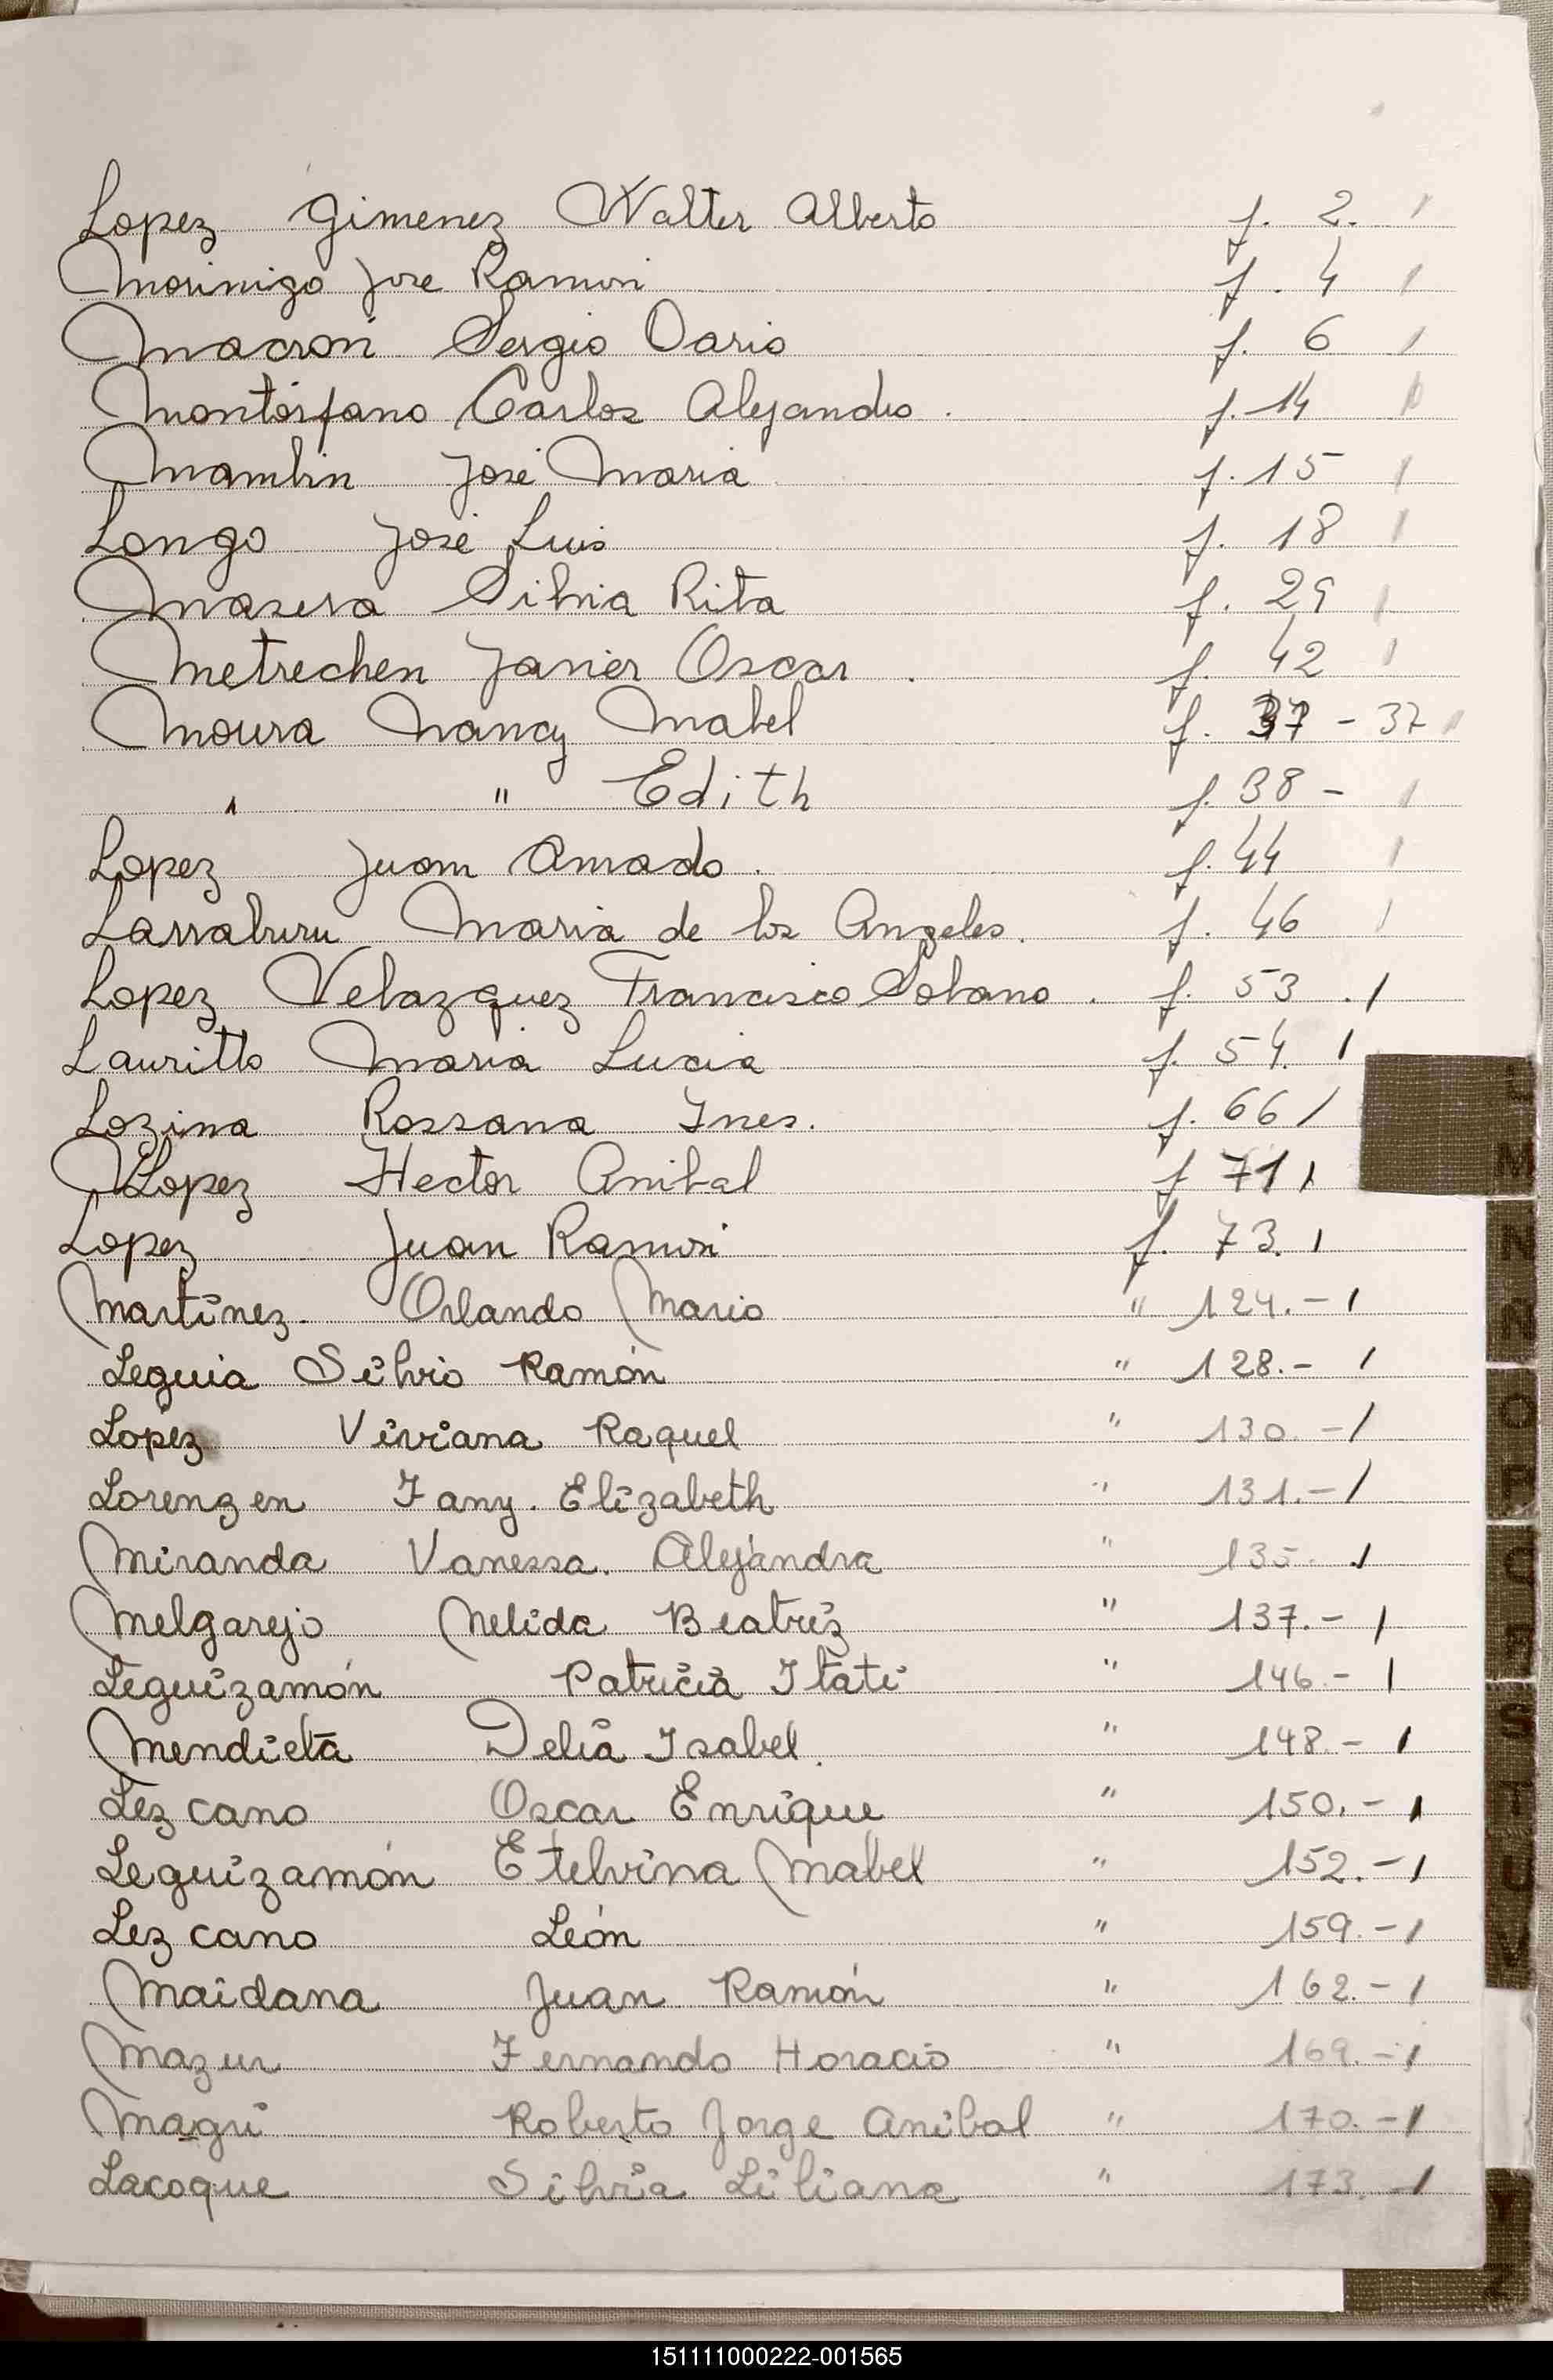 Lopez Gimenez Walter Alberto f. 2. /
Morinigo Jose Ramón f. 4 /
Macron Sergio Dario f. 6 /
Montórfano Carlos Alejandro . f. 14 /
Mamlin José Maria f. 15 /
Longo José Luis f. 18 /
Masera Silvia Rita f. 29 /
Metrechen Javier Oscar . f. 42 /
Moura Nancy Mabel f. 37 - 37 /
" " Edith f. 38 - /
Lopez Juan Amado . f. 44 /
Larralburu Maria de los Angeles. f. 46 /
Lopez Velazquez Francisco Solano . f. 53 . /
Lauritto Maria Lucia f. 54. /
Lozina Rossana Ines. f. 66 /
Lopez Hector Anibal f 71 /
Lopez Juan Ramón f. 73. /
Martinez. Orlando Mario " 124.- /
Leguia Silvio Ramón " 128.- /
Lopez Viviana Raquel " 130.- /
Lorenzen Fany. Elizabeth " 131.- /
Miranda Vanessa. Alejandra " 135.- /
Melgarejo Nelida Beatriz " 137.- /
Leguizamón Patricia Itati " 146.- /
Mendieta Delia Isabel. " 148.- /
Lezcano Oscar Enrique " 150.- /
Leguizamón Etelvina Mabel " 152.- /
Lezcano León " 159.- /
Maidana Juan Ramón " 162.- /
Mazur Fernando Horacio " 169.- /
Magri Roberto Jorge Anibal " 170.- /
Lacoque Silvia Liliana " 173.- /
L
M
N
Ñ
O
P
Q
R
S
T
U
V
Y
Z
151111000222-001565